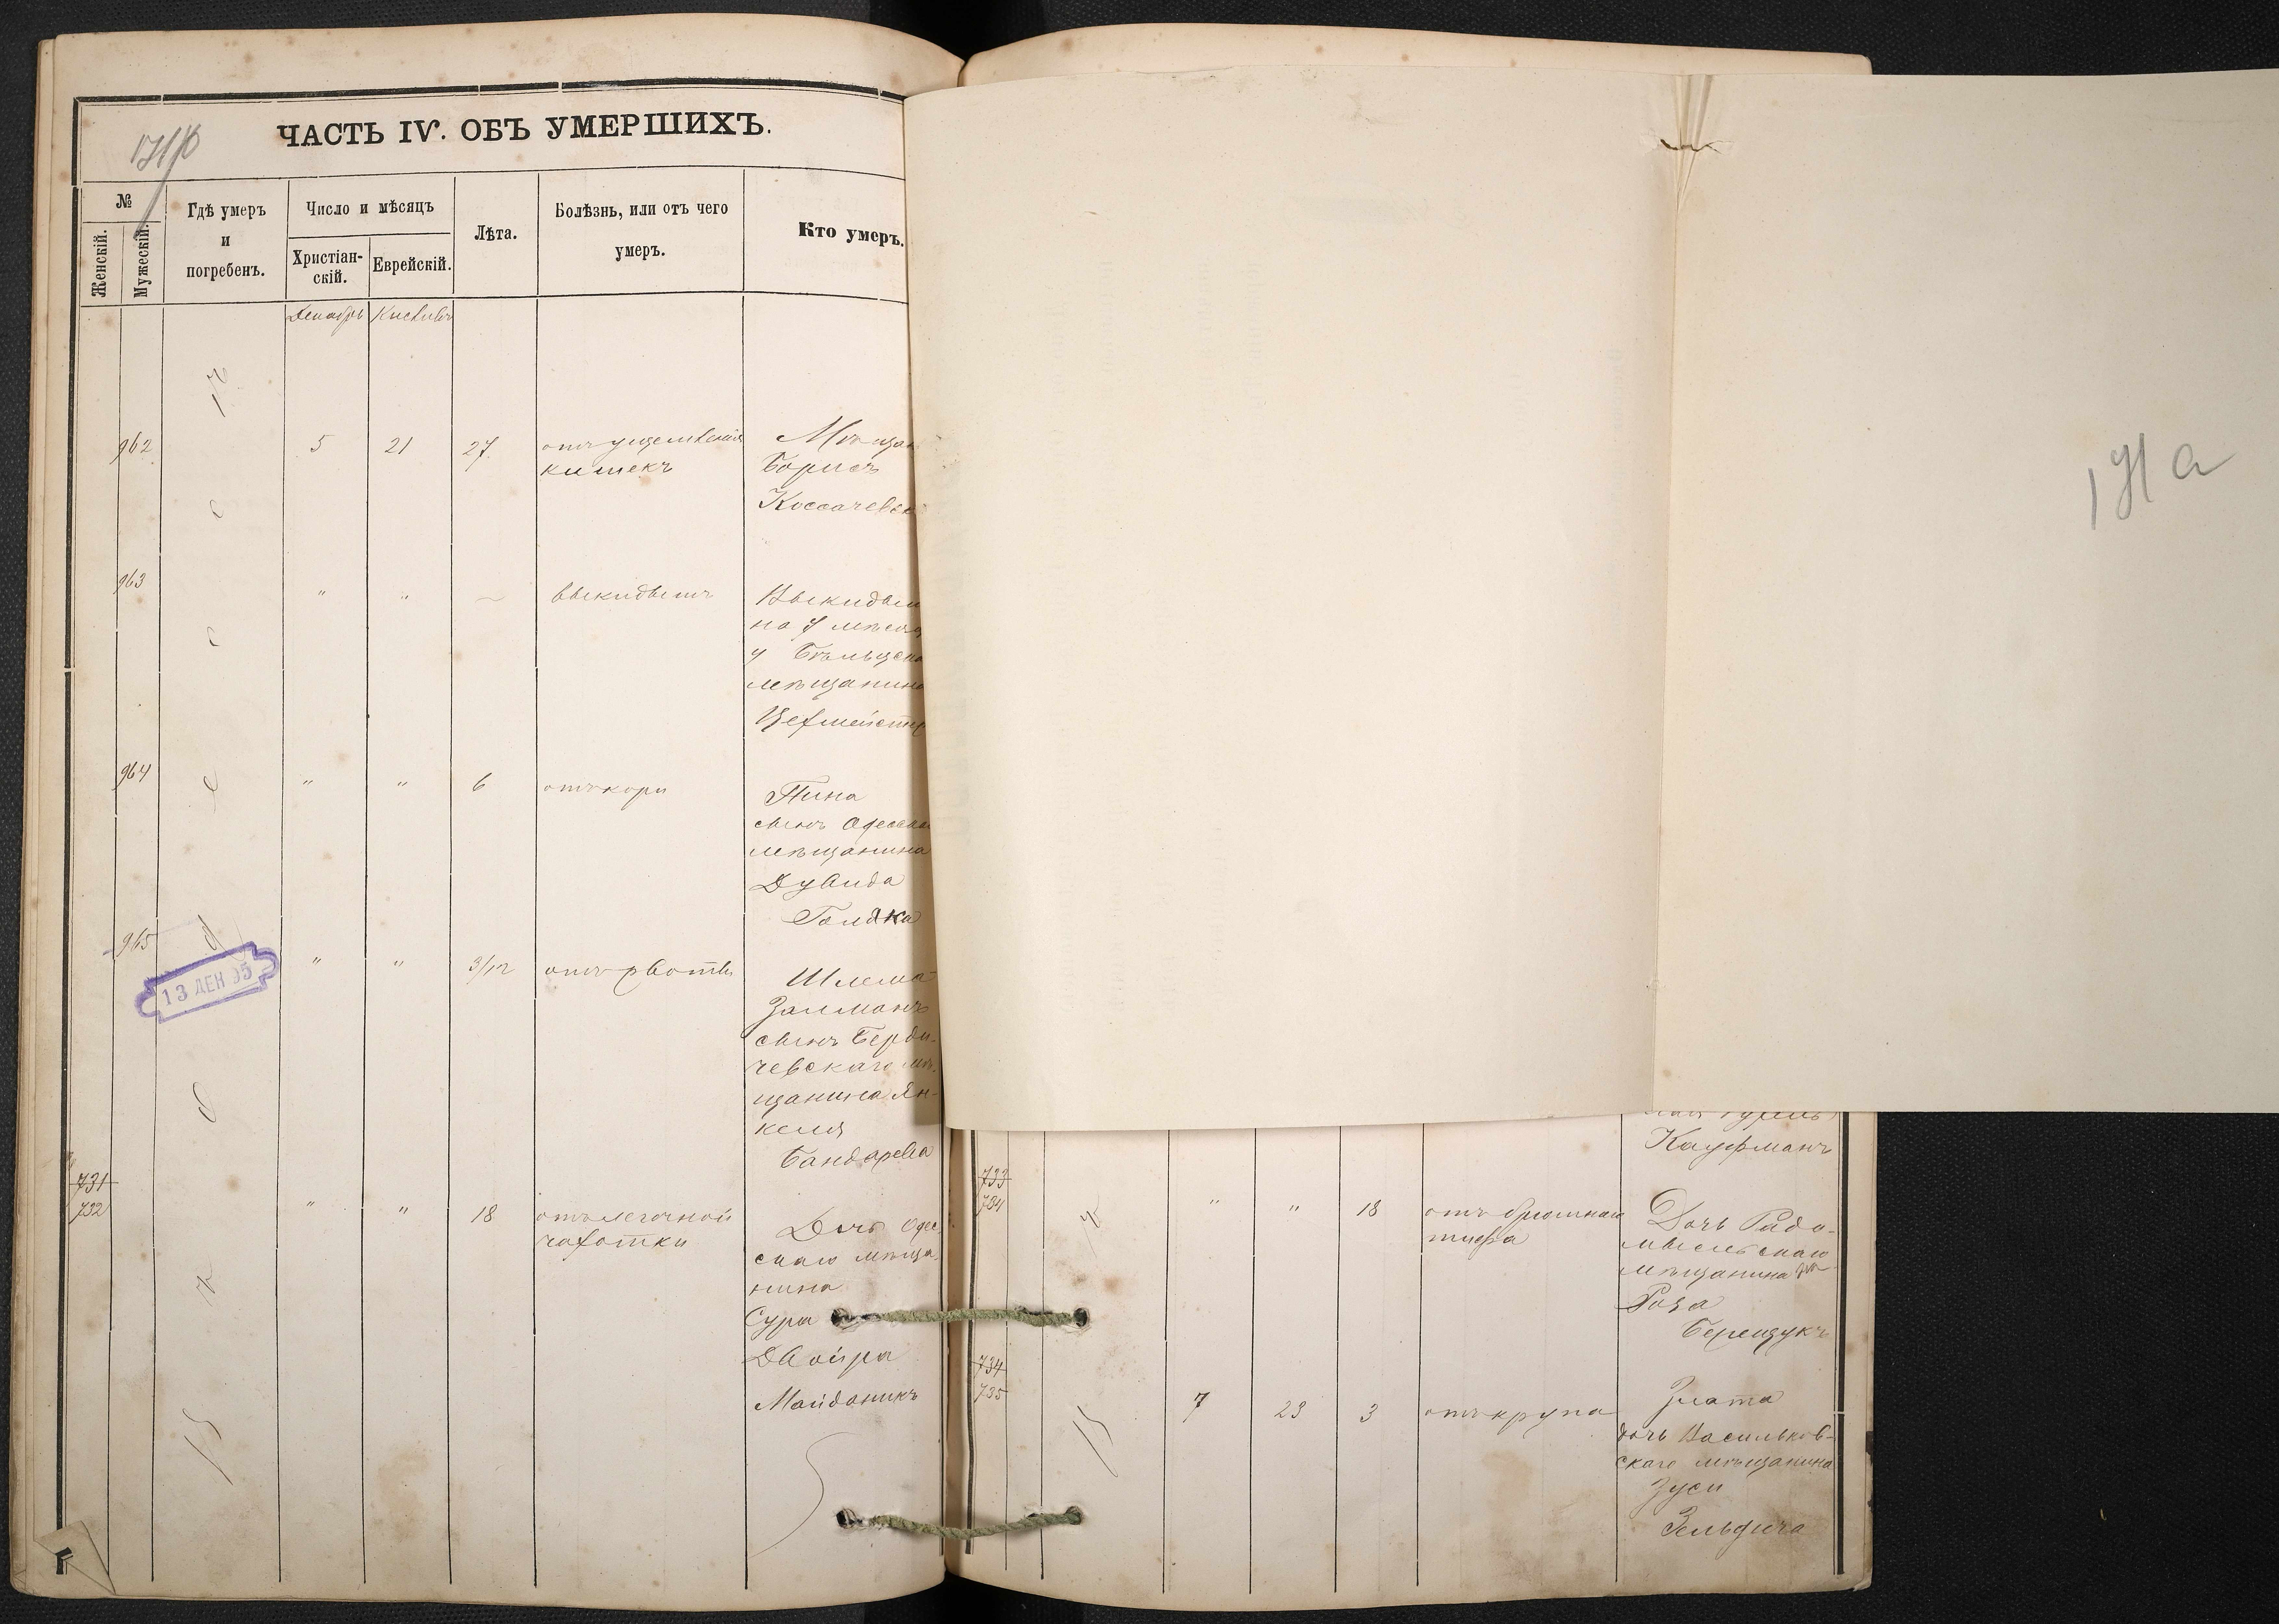 ЧАСТЬ IV. ОБЪ УМЕРШИХЪ.
№
Женскій.
Мужескій.
Гдѣ умеръ
и
погребенъ.
Число и мѣсяцъ
Христіан-
скій.
Еврейскій.
Лѣта.
Болѣзнь, или отъ чего
умеръ.
Кто умеръ.
Декабрь
Кислевъ
962
5
21
27
отъ ущемленія
кишекъ
Мѣщан
Борисъ
Коссачевск
963
"
"
—
выкидышъ
Выкидыш
на
у Бѣльцска
мѣщанина
Цехмейстр
964
"
"
6
отъ кори
Пина
сынъ Одесска
мѣщанина
Дувида
965
13 ДЕК 95
"
"
3/12
отъ рвоты
Шлема
Залманъ
сынъ Берди-
чевскаго мѣ-
щанина Ян-
келя
Бандарева
731
732
"
"
18
отъ легочной
чахотки
Дочь Одес
скаго мѣща-
нина
Сура
Двойра
Майданикъ
171а
Кауфманъ
733
734
"
"
18
отъ брюшнаго
тифа
Дочь Радо-
мысльскаго
мѣщанина
Роза
Берещукъ
734
735
7
23
3
отъ крупа
Злата
дочь Васильков-
скаго мѣщанина
Зуси